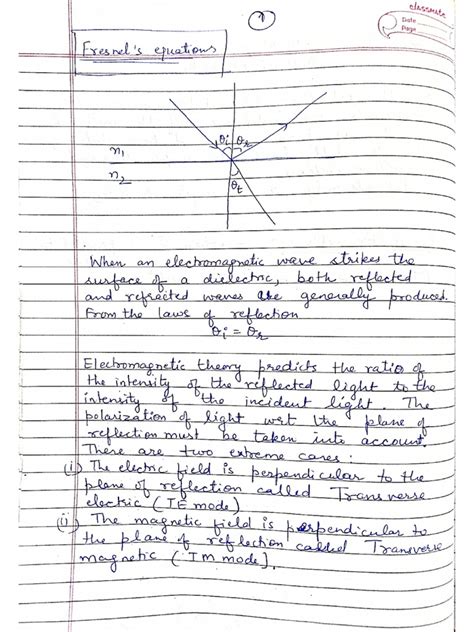 1
classmate
Date
Page
Fresnel's equations
θi θr
n1
n2
θt
When an electromagnetic wave strikes the
surface of a dielectric, both reflected
and refracted waves are generally produced.
From the laws of reflection
θi = θr
Electromagnetic theory predicts the ratio of
the intensity of the reflected light to the
intensity of the incident light The
polarization of light wrt the plane of
reflection must be taken into account.
There are two extreme cases :
(i) The electric field is perpendicular to the
plane of reflection called Transverse
electric (TE mode)
(ii) The magnetic field is perpendicular to
the plane of reflection called Transverse
magnetic (TM mode).